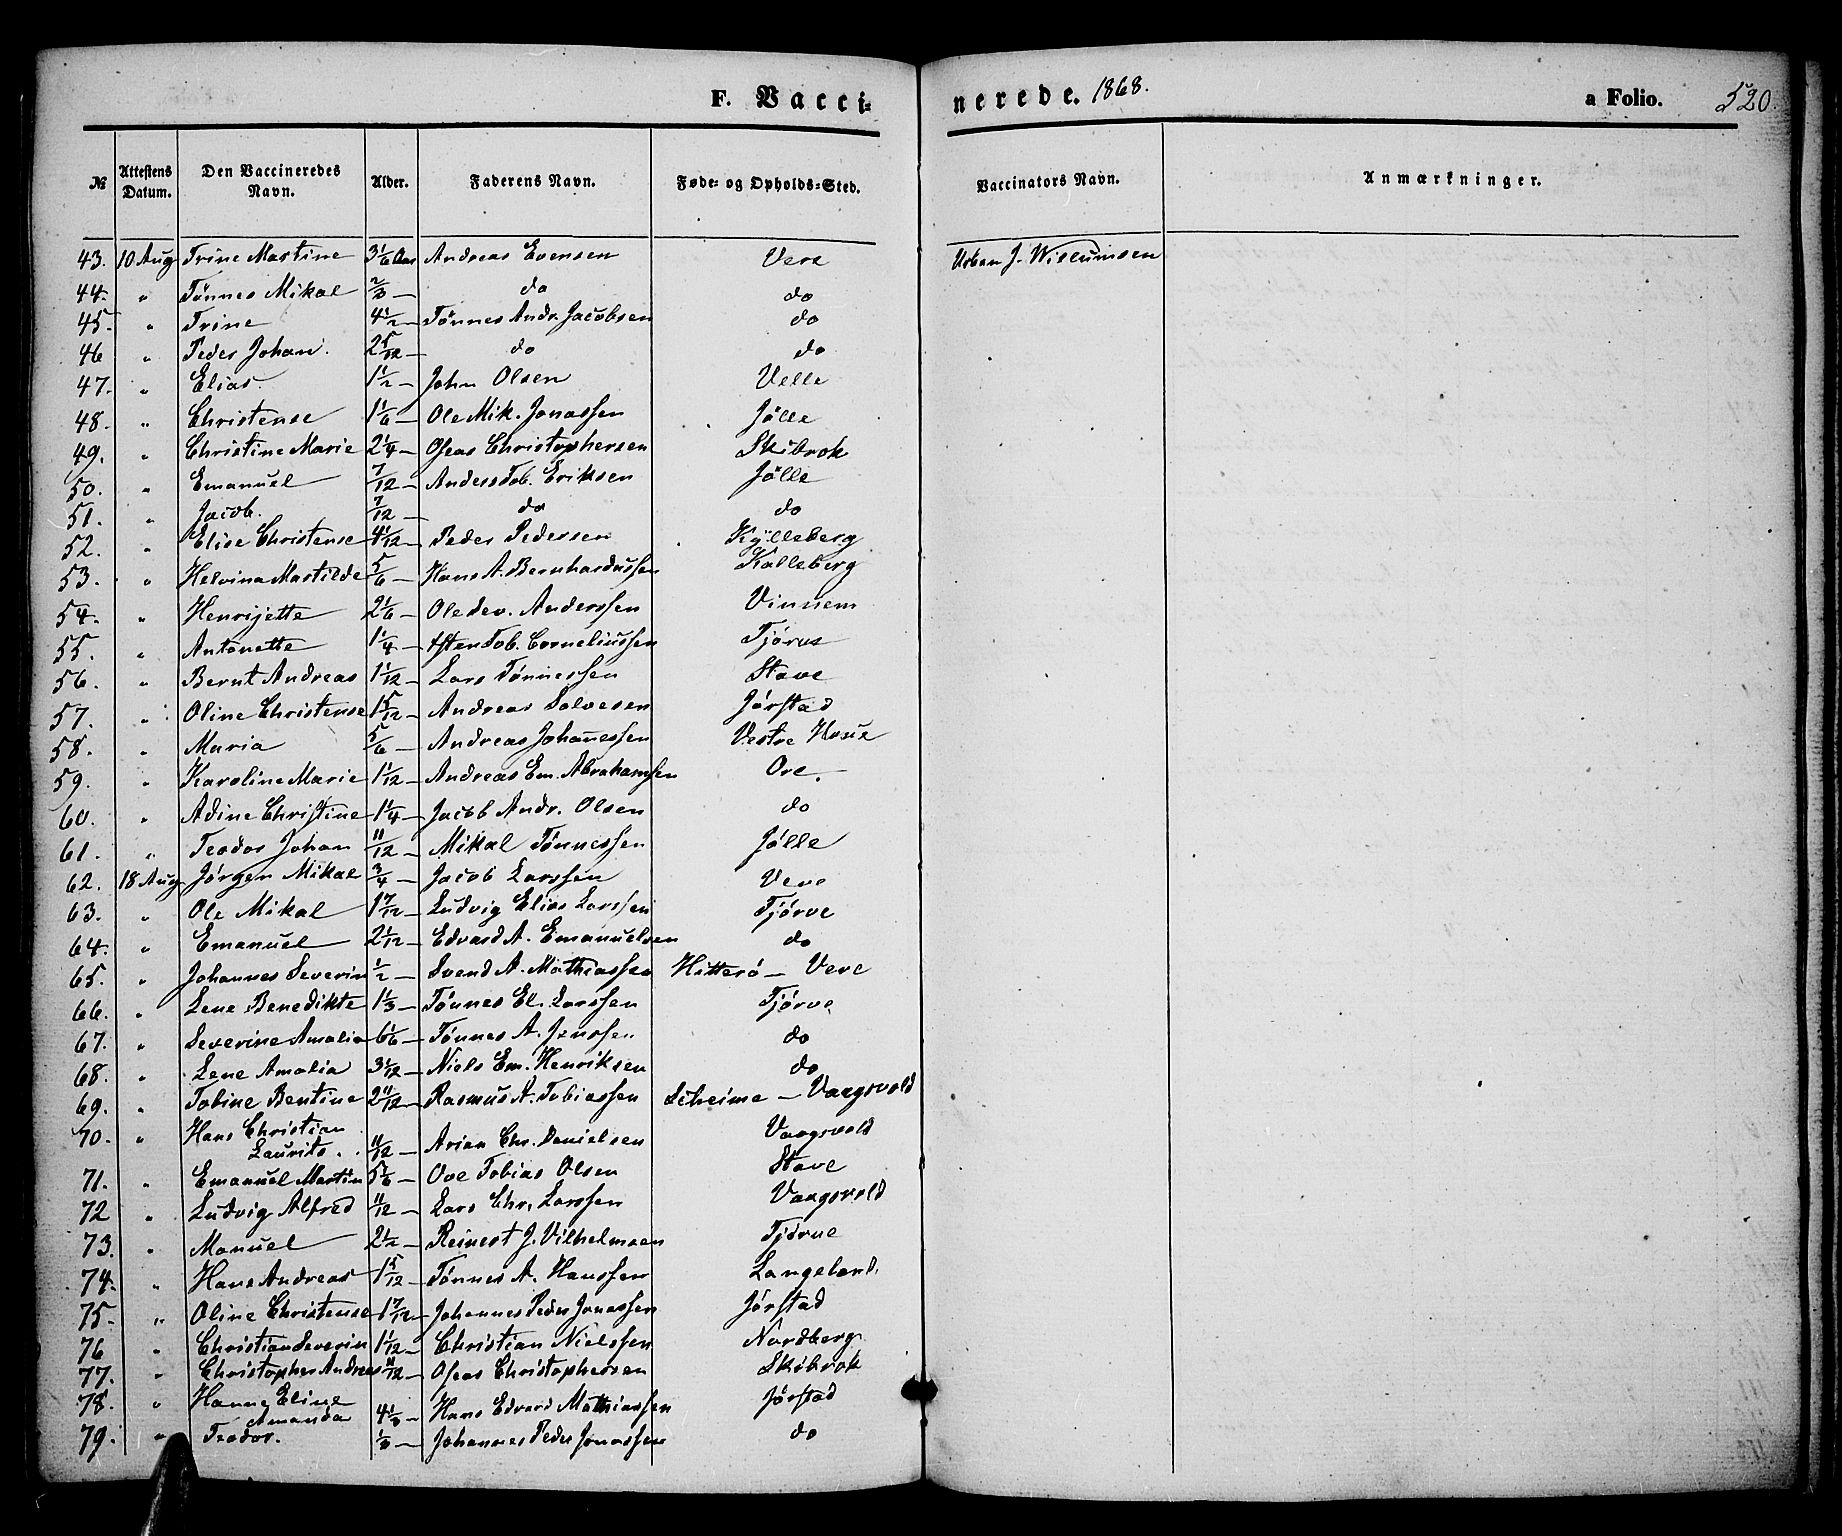 F. Vacci- nerede. 1868. a Folio. 520.
№ Attestens Datum. Den Vaccineredes Navn. Alder. Faderens Navn. Føde- og Opholds-Sted. Vaccinators Navn. Anmærkninger.
43. 10 Aug Trine Martine 3 1/6 Aar Andreas Evensen Vere Urban J.
44. " Tönnes Mikal 2/3 — do do
45. " Trine 4 1/2 — Tönnes Andr. Jacobsen do
46 " Peder Johan. 2 5/12 — do do
47. " Elias. 1 1/2 — John Olsen Velle
48. " Christense 1 1/6 — Ole Mik. Jonassen Jölle
49. " Christine Marie 2 1/4 — Oseas Christophersen Skibrok
50. " Emanuel 7/12 — Anders Tob. Eriksen Jölle
51. " Jacob. 7/12 — do do
52. " Elise Christense 4 1/12 — Peder Pedersen Kylleberg
53. " Helvina Martilde 5/6 — Hans A. Bernhardussen Kalleberg
54. " Henrijette 2 1/6 — Ole Anderssen Vinnem
55. " Antonette 1 1/4 — Tob. Corneliussen Tjørve
56. " Bernt Andreas 1 1/12 — Lars Tønnessen Stave
57. " Oline Christense 1 5/12 — Andreas Salvesen Jørstad
58. " Maria 5/6 — Andreas Johanessen Vestre
59. " Karoline Marie 1 1/12 — Andreas Em. Abrahamsen Ore.
60. " Adine Christine 1 1/4 — Jacob Andr. Olsen do
61. " Teodor Johan 11/12 — Mikal Tønnessen Jølle
62. 18 Aug Jørgen Mikal 3/4 — Jacob Larssen Vere
63. " Ole Mikal 1 7/12 — Ludvig Elias Larssen Tjørve
64. " Emanuel 2 1/12 — Edvard A. Emanuelsen do
65. " Johannes Severin 1/2 — Svend A. Mathiassen Hitterø — Vere
66. " Lene Benedikte 1 1/3 — Tønnes El. Larssen Tjørve
67. " Severine Amalia 6 1/6 — Tønnes A. Jenssen do
68. " Lene Amalia 3 1/12 — Niels Em. Henriksen do
69. " Tobine Bentine 2 11/12 — Rasmus A. Tobiassen Scheime — Vaagsvold
70. " Hans Christian
Laurits. 11/12 — Arian Chr. Danielsen Vaagsvold
71. " Emanuel Martin 5 1/6 — Ove Tobias Olsen Stave
72 " Ludvig Alfred 11/12 — Lars Chr. Larssen Vaagsvold
73. " Manuel 2 1/2 — Reinert J. Vilhelmsen Tjørve
74. " Hans Andreas 1 5/12 — Tønnes A. Hanssen Langeland.
75. " Oline Christense 1 7/12 — Johannes Peder Jonassen Jørstad
76 " Christian Severin 1 1/12 — Christian Nielssen Nordberg
77. " Christopher Andreas 11/12 — Oseas Christophersen Skibrok
78. " Hanne Eline
Amanda 4 1/3 — Hans Edvard Mathiassen Jørstad
79. " Teodor. 1/3 — Johannes Peder Jonassen do